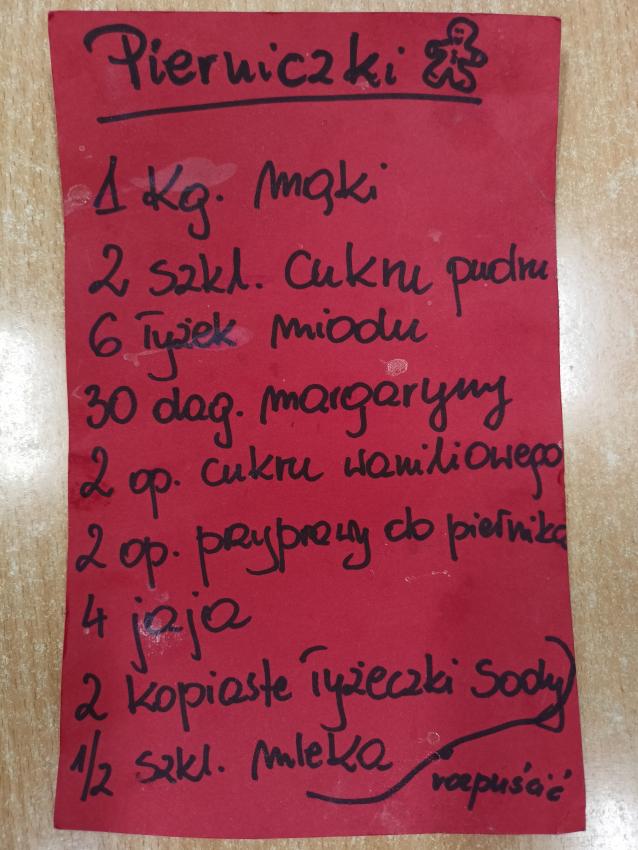 Pierniczki
1 kg. mąki
2 szkl. cukru pudru
6 łyżek miodu
30 dag. margaryny
2 op. cukru waniliowego
2 op. przyprawy do piernika
4 jaja
2 kopiaste łyżeczki sody
1/2 szkl. mleka
rozpuścić